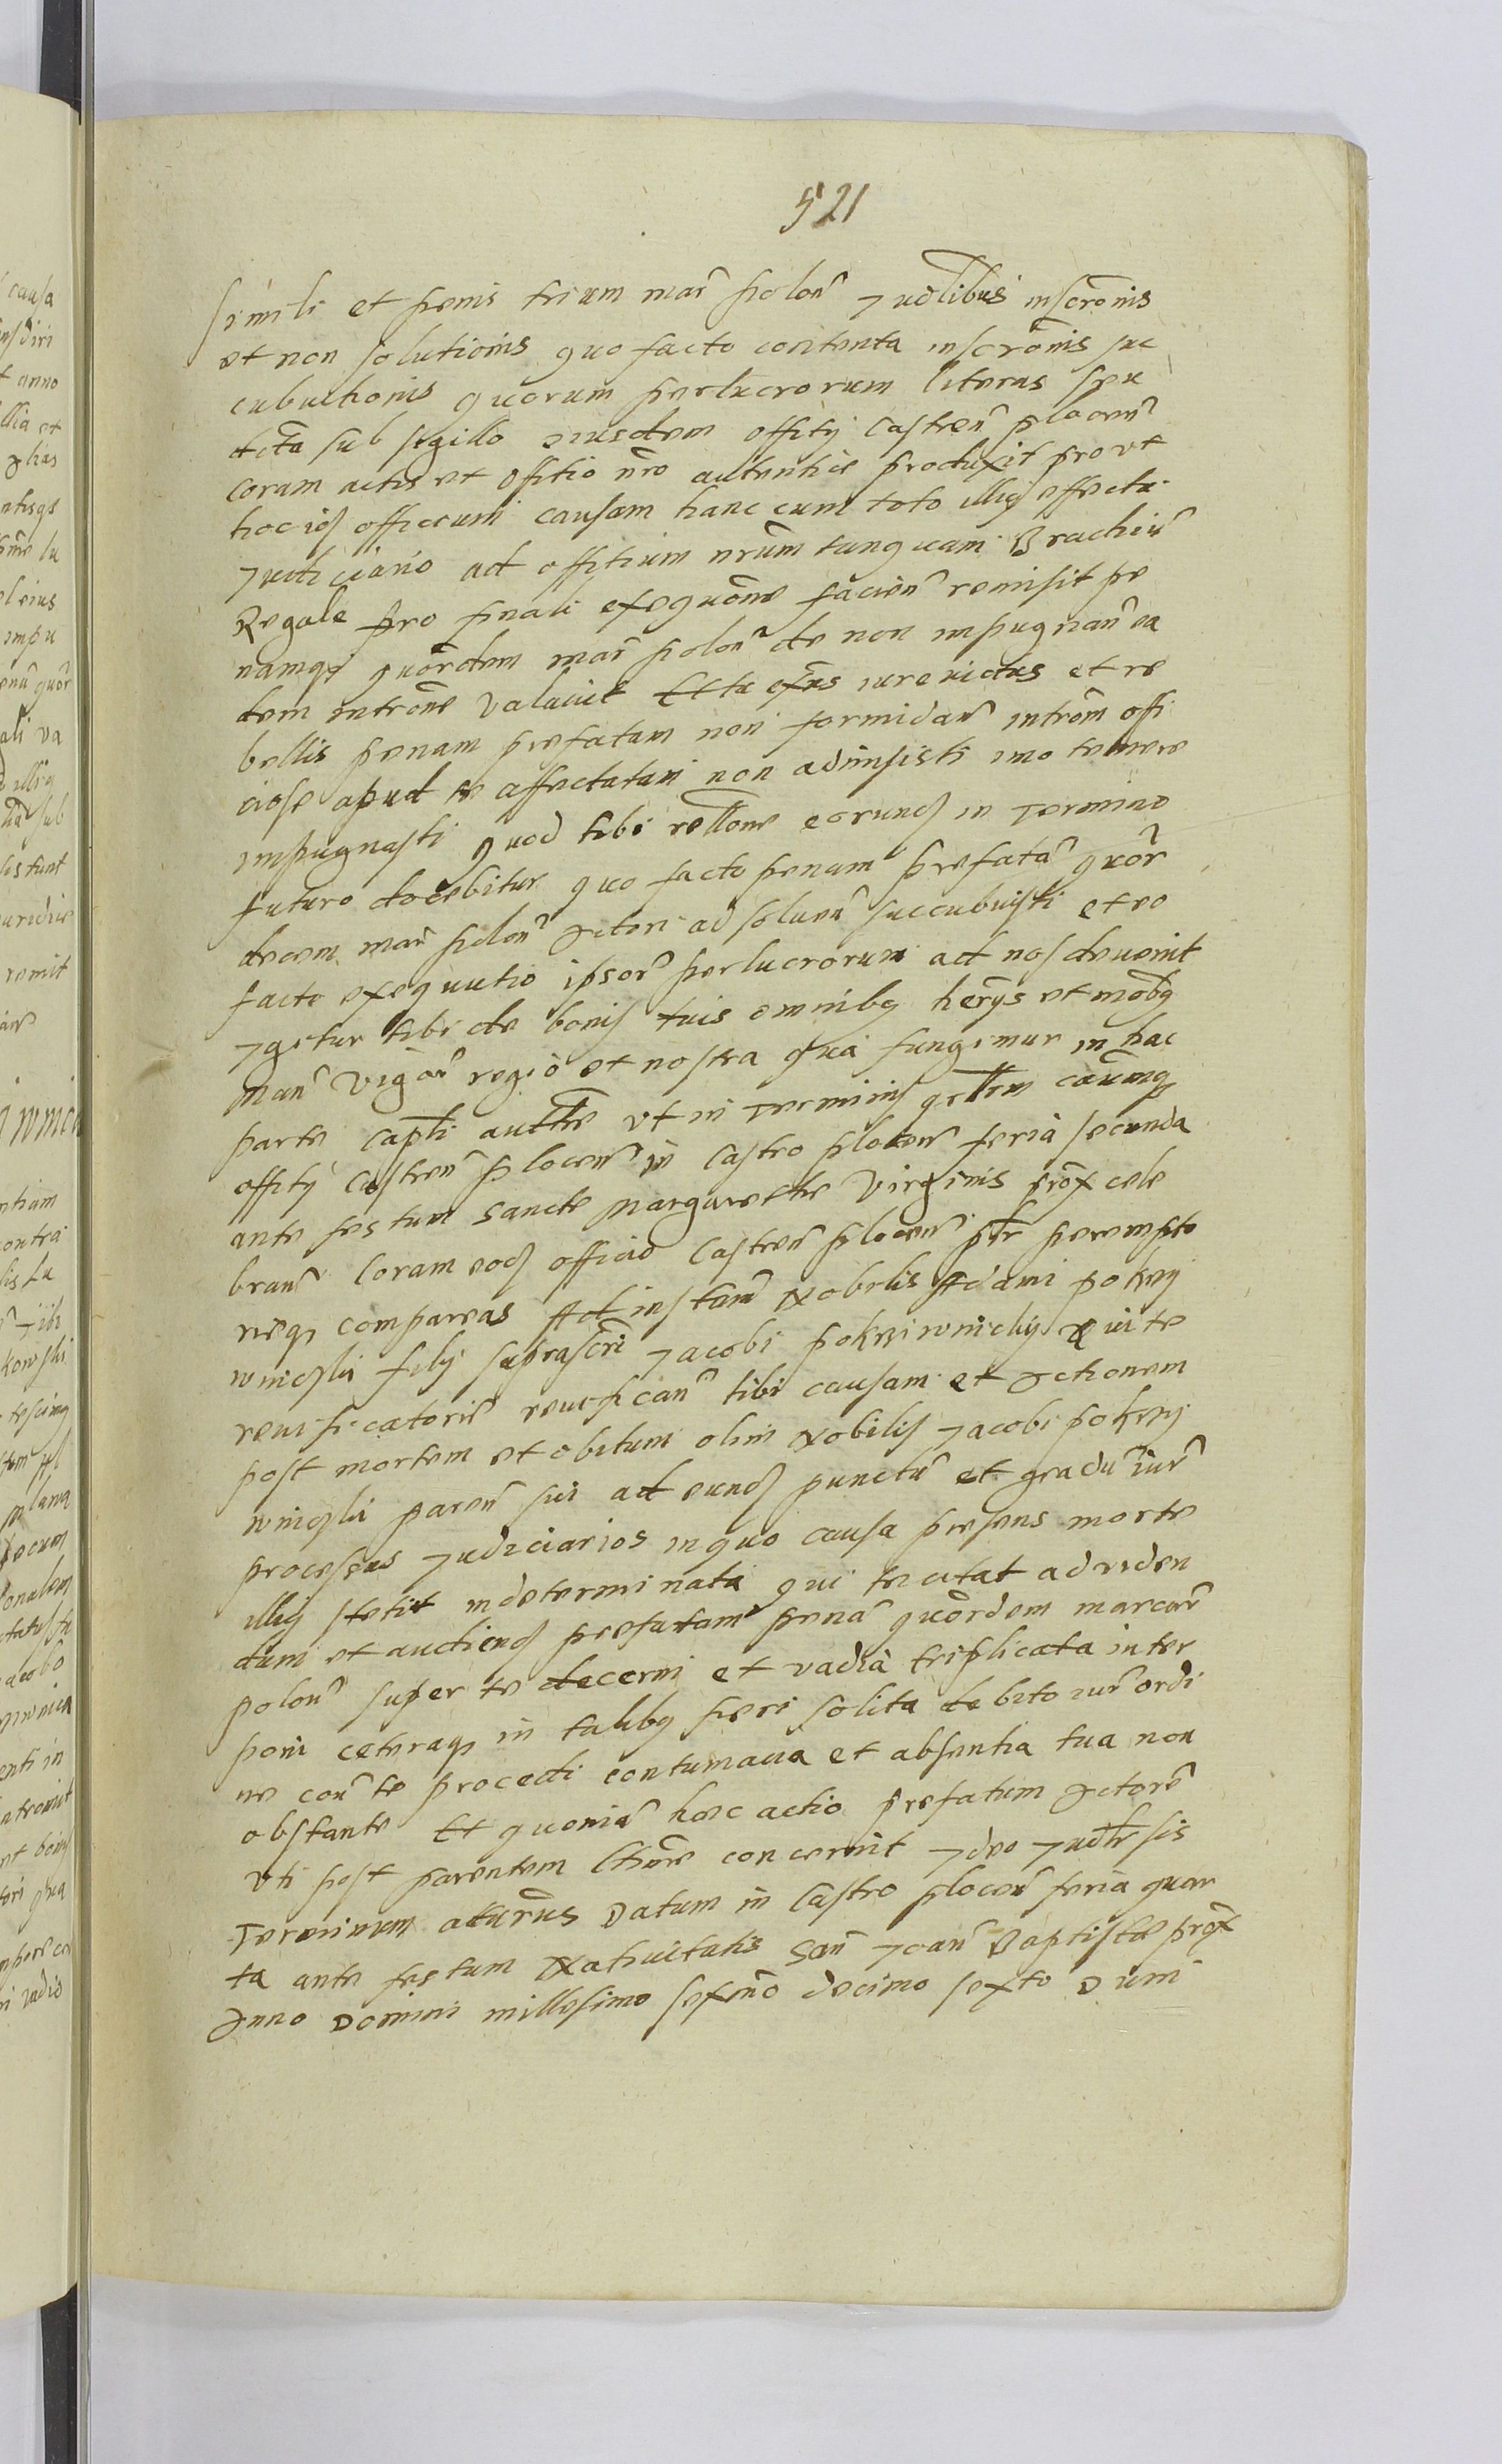 521
simili et penis trium mar̃ polon̄ Judlibus inscrōnis
et non solutionis quo facto contenta inscrōnis suc
cubuitionis quorum perlucrorum literas spe
ctcta sub sigillo eiusdem offitij Castren̄ plocen̄
coram actis et offitio nr̄o autentice produxit provt
hoc id officium causam hanc cum toto illiq effectu
Judiciario ad offitium nr̄um tanquam Brachiū
Regale pro finali exequōne facien̄ remisit pe
namq quōrdem mar̃ polon̄ de non impugnan̄ ea
dem introne valauit Et tu exn̄s iure victus et re
bellis penam prefatam non formidan̄ intrōm offi
ciose apud te affectatam non admisisti imo temere
impugnasti quod tibi rellone eorund in Termino
futuro docebitur quo facto penam prefatā quōr
decem mar̃ polon̄ Actori ad soluen̄ succubuisti et eo
facto exequutio ipsor̃ perlucrorum ad nos deuenit
Igitur tibi de bonis tuis omnibq herijs et mobq
Man̄ vigor̃ regio et nostra qua fungimur in hac
parte capli auctte vt in Terminis qrellrm caūmq
offitij Castren̄ plocen̄ in Castro plocen̄ feria secunda
ante festum sancte Margarethe Virginis prox cele
bran̄ Coram eod officio Castren̄ plocen̄ ptr perempto
rieq compareas Ad instan̄ Nobilis Adami pokrzy
wniczki filij suprascri Jacobi pokrziwniczky Qui te
reuificatorie reuifican̄ tibi causam et Actionem
post mortem et obitum olim Nobilis Jacobi pokrzy
wniczki paren̄ sui ad eund punctū et gradū iur̄
processus Judiciarios in quo causa presens morte
illiq stetit indeterminata qui te citat ad viden
dum et audiend prefatam penā quōrdem marcar̄
polon̄ super te decerni et vadia triplicata inter
poni ceteraq in talibq fieri solita debito iur̄ ordi
ne con̄ te procedi contumacia et absentia tua non
obstante Et quoniā hoec actio prefatum Actorē
vti post parentem concernit Ideo Judtr sis
Terminum atturus Datum in Castro plocen̄ feria quar
ta ante festum Natiuitatis San̄ Joan̄ Baptistae prox
Anno Domini millesimo sexmō decimo sexto Dum